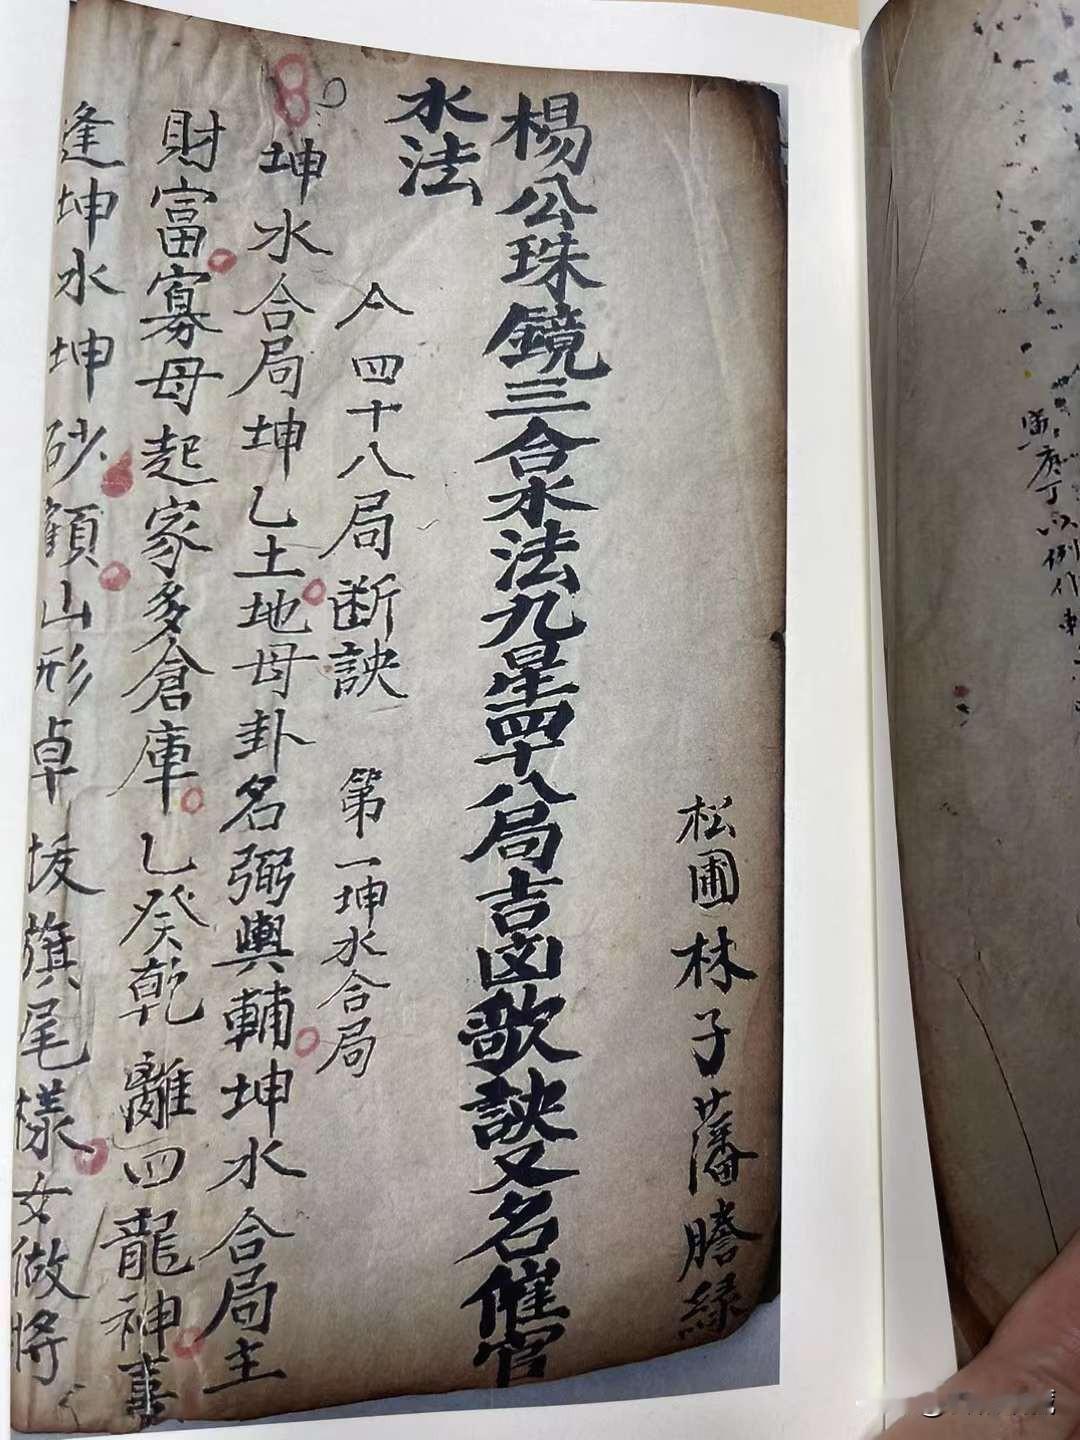 松圃林子藩謄録
楊公珠鏡三合水法九星四十八局吉凶歌訣又名催官
水法
四十八局断訣 第一坤水合局
坤水合局坤乙土地母卦名弼與輔坤水合局主
財富寡母起家多倉庫乙癸乾離四龍神喜
逢坤水坤砂顧山形卓拔旗尾樣女做將